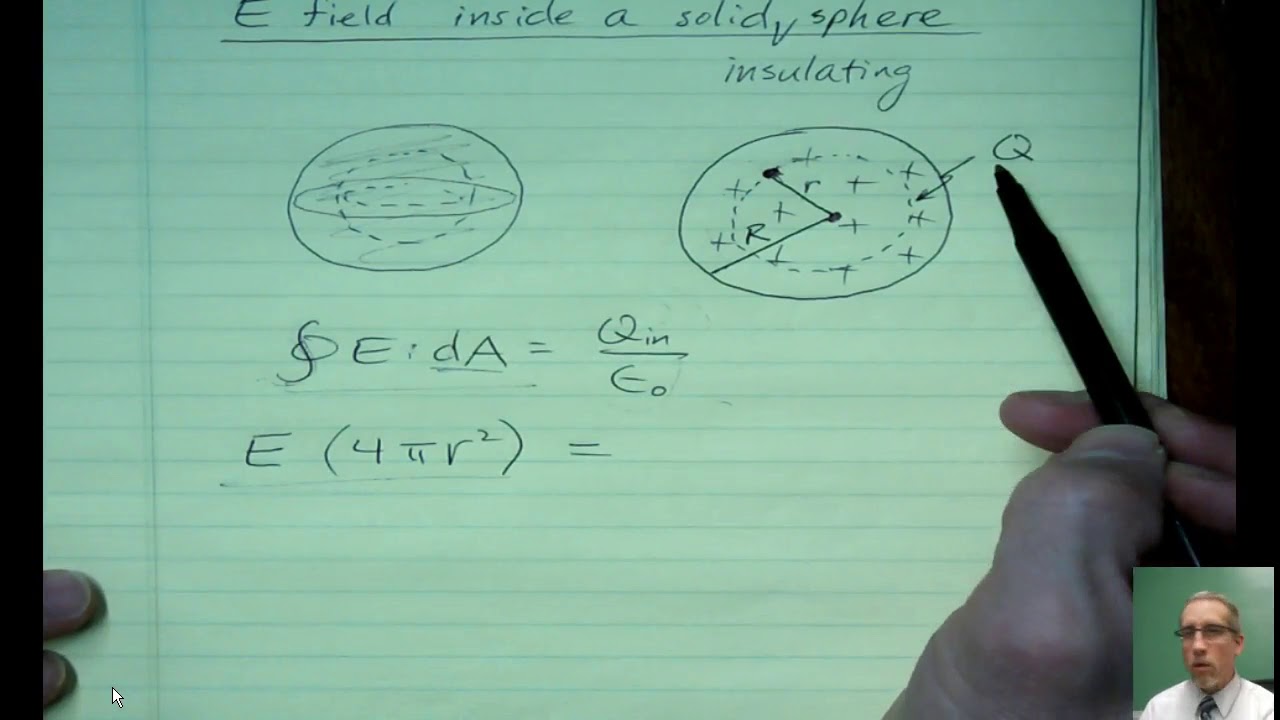 E field inside a solid sphere
insulating
Q
r
R
∮ E · dA = Qin / ϵ₀
E (4πr²) =